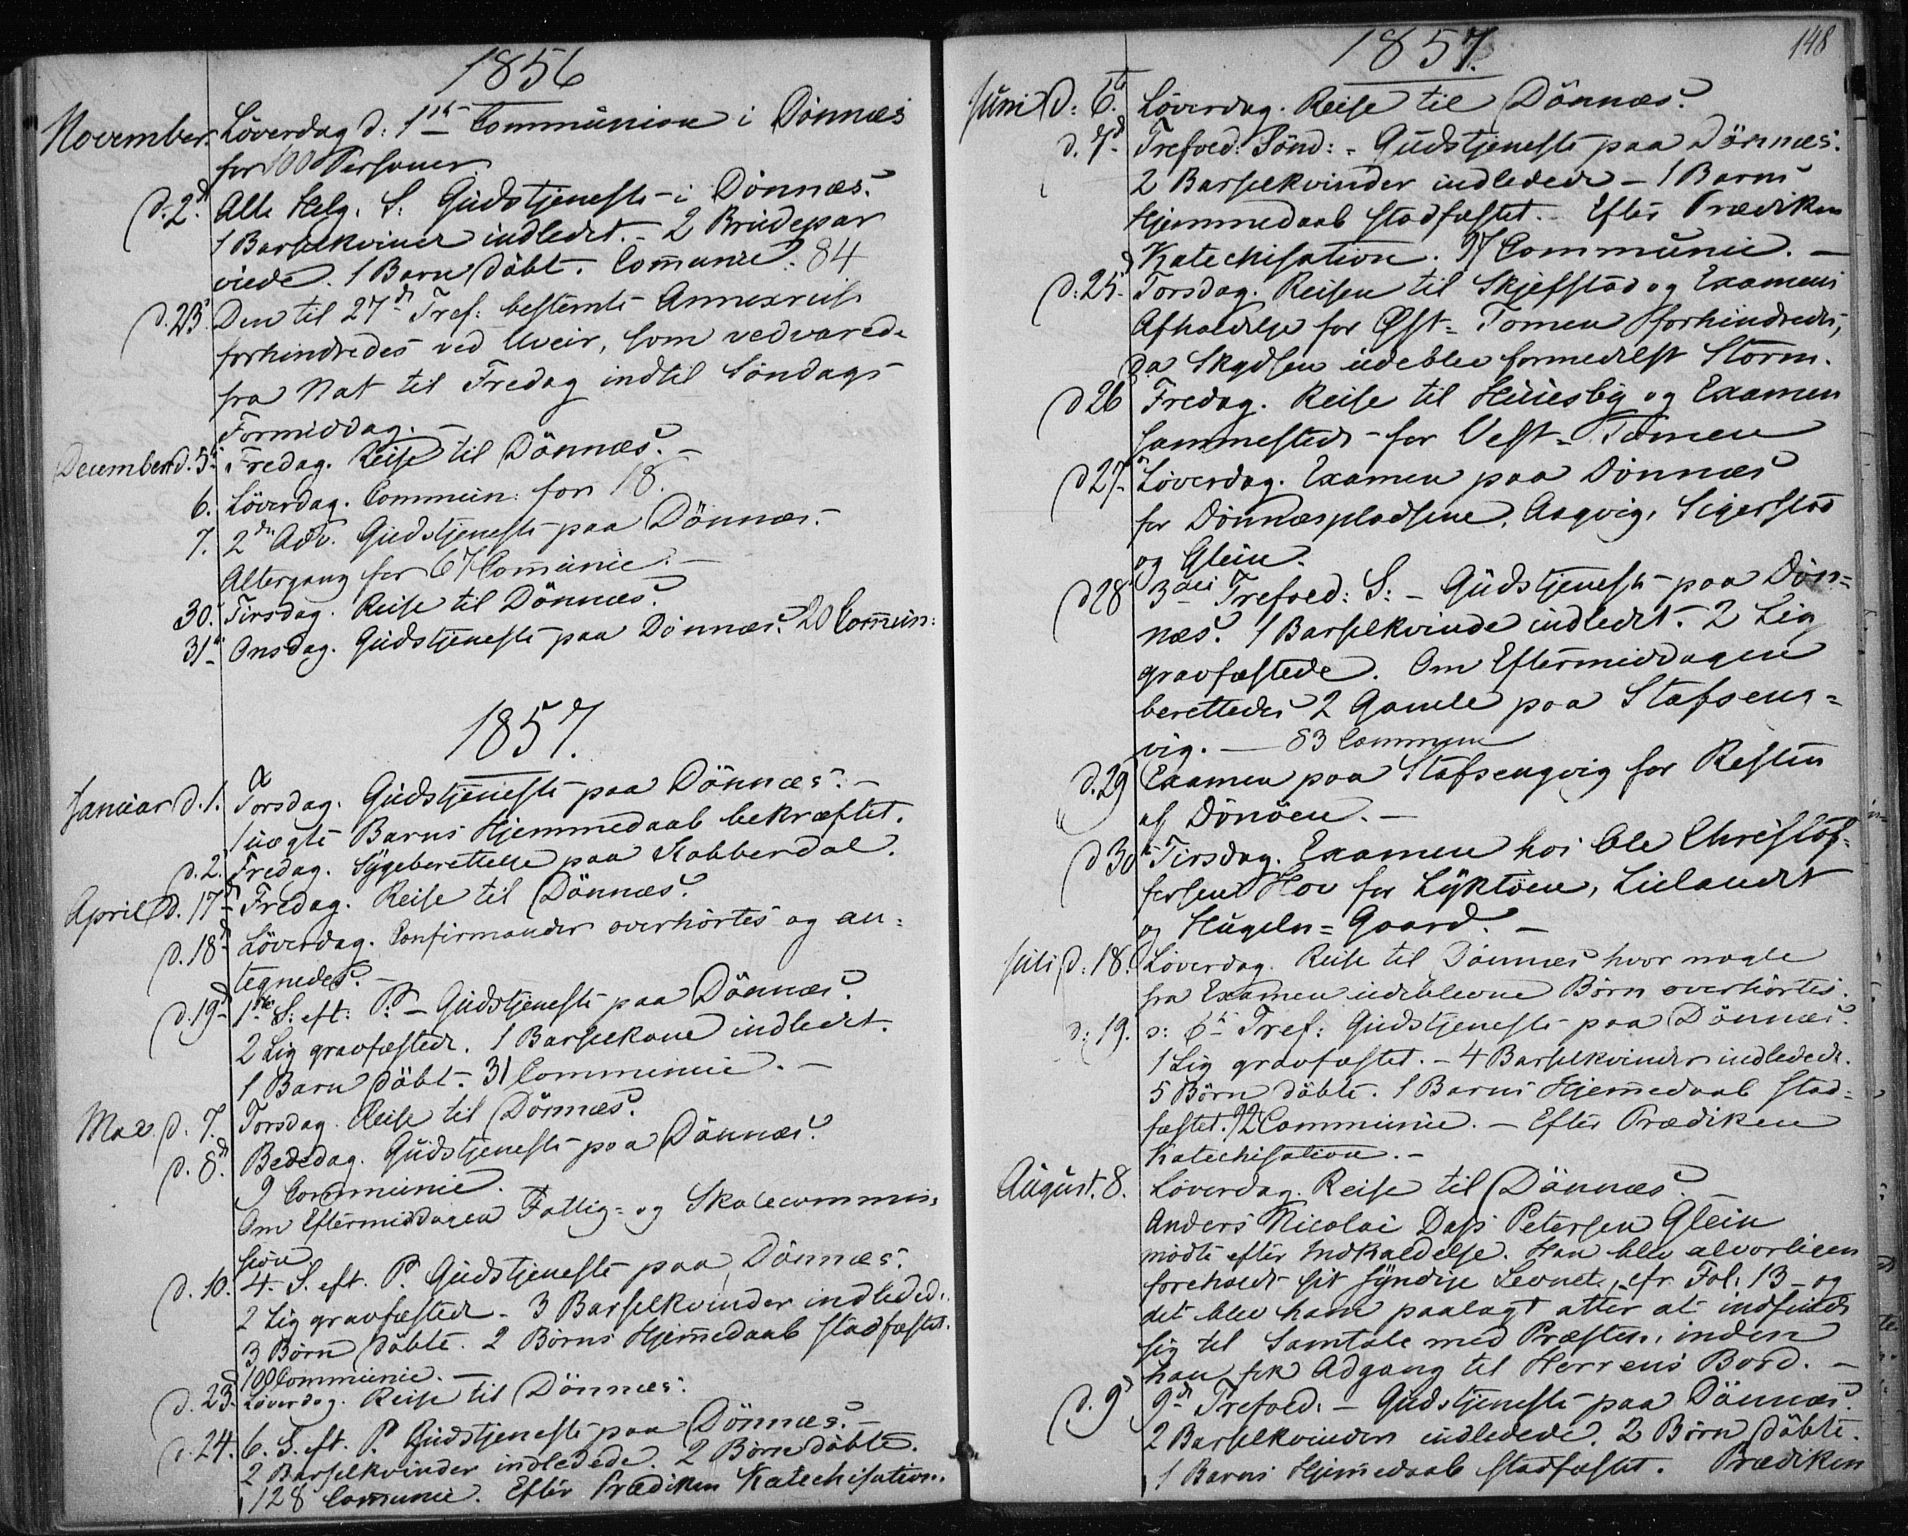 1856
November. Löverdag d: 1ste Communion i Dönnæs
for 100 Personer.
d. 2d Alle Helg. S: Gudstjeneste i Dönnæs.
1 Barselkvinde indledet. - 2 Brudepar
viede. 1 Barn döbt. Comunic: 84
d. 23d Den til 27de Tref: bestemte Annexreise
forhindredes ved Uveir, som vedvarede
fra Nat til Fredag indtil Söndags
Formiddag. -
December d. 5te Fredag. Reise til Dönnæs. -
6. Löverdag. Commun: for 18.
7. 2den Adv. Gudstjeneste paa Dönnæs. -
Altergang for 67 Comunic. -
30. Tirsdag. Reise til Dönnæs.
31te Onsdag. Gudstjeneste paa Dönnæs. 20 Comun:
1857.
Januar d. 1. Torsdag. Gudstjeneste paa Dönnæs. -
1 uægte Barns Hjemmedaab bekræftet.
d. 2. Fredag. Sygeberettelse paa Kobberdal.
April d. 17d Fredag. Reise til Dönnæs.
d. 18d Löverdag. Confirmander overhörtes og an-
tegnedes. -
d. 19d 1ste S: eft: P. - Gudstjeneste paa Dönnæs.
2 Lig gravfæstede. 1 Barselkone indledet.
1 Barn döbt. 31 Communic. -
Mai d. 7. Torsdag. Reise til Dönnæs.
d. 8d Bededag. Gudstjeneste paa Dönnæs.
9 Communic.
Om Eftermiddagen Fattig- og Skolecommis-
sion
d. 10. 4. S. eft. P. Gudstjeneste paa Dönnæs.
2 Lig gravfæstede - 3 Barselkvinder indlededes.
3 Börn döbte. 2 Börns Hjemedaab stadfæstet.
100 Communic. -
d. 23d Löverdag. Reise til Dönnæs.
d. 24. 6. S. eft. P. Gudstjeneste paa Dönnæs. -
2 Barselkvinder indledede. 2 Börn döbte.
128 Comunic. Efter Prædiken Katechisation.
148
1857.
Juni d: 6te Löverdag. Reise til Dönnæs.
d. 7d Trefold: Sönd: - Gudstjeneste paa Dönnæs.
2 Barselkvinder indledede - 1 Barns
Hjemmedaab stadfæstet. - Efter Prædiken
Katechisation. 97 Communic. -
d: 25d Torsdag. Reisen til Skjefstad og Examens
Afholdelse for Öst- Tomen forhindredes,
da Skydsen udeblev formedelst Storm.
d 26 Fredag. Reise til Huusby og Examen
sammesteds for Vest- Tomen
d 27d Löverdag. Examen paa Dönnæs
for Dönnæspladsene, Aagvig, Sigerstad
og Glein.
d 28 3die Trefold: S: - Gudstjeneste paa Dön-
næs. 1 Barselkvinde indledet. 2 Lig
gravfæstede. Om Eftermiddagen
berettedes 2 Gamle paa Stafseng-
vig. - 83 Commun
d. 29 Examen paa Stafsengvig for Resten
af Dönöen. -
d 30 Tirsdag. Examen hos Ole Christof-
fersen Hov for Lyktöen, Lielandet
og Hugeln- Gaard. -
Juli d: 18. Löverdag. Reise til Dönnæs hvor nogle
fra Examen udeblevne Börn overhörtes.
d: 19. s: 6te Tref: Gudstjeneste paa Dönnæs.
1 Lig gravfæstet. - 4 Barselkvinder indledede.
5 Börn döbte. 1 Barns Hjemedaab stad-
fæstet. 92 Communic. - Efter Prædiken
Katechisation. -
August. 8. Löverdag. Reise til Dönnæs. -
Anders Nicolai Dass Petersen Glein
mödte efter Indkaldelse. Han blev alvorligen
foreholdt sit syndige Levnet, cfr. Fol: 13 - og
det blev ham paalagt atter at indfinde
sig til Samtale med Præsten, inden
han fik Adgang til Herrens Bord. -
d. 9d 9de Trefold. - Gudstjeneste paa Dönnæs.
2 Barselkvinder indledede. 2 Börn döbte.
1 Barns Hjemedaab stadfæstet. Prædiken